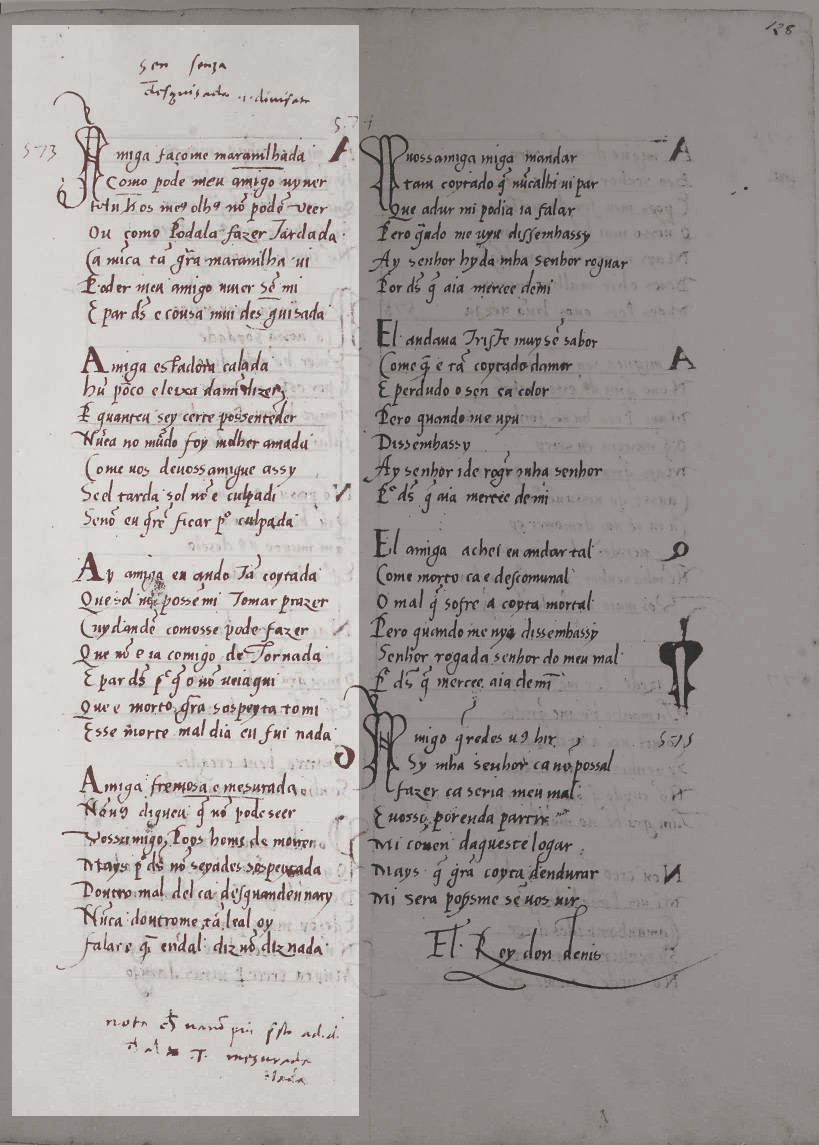 sen senza
desguisada .i. divisata
573
Amiga faço me maravilhada
Como pode meu amigo vyver
hu os meꝯ olhꝯ nō podē veer
Ou como Podala fazer Tardada
Ca nūca tā grā maravilha vi
Poder meu amigo viver sē mi
E par ds̄ e cousa mui des guisada
Amiga estad ora calada
hū pōco e leixa damī dizer
P quanteu sey certe possentēder
Nūca no mūdo foy molher amada
Come vos devossamigue assy
Scel tarda sol nō e culpadi
Senō eu q̄re ficar pº culpada
Ay amiga eu ando Tā coytada
Que sol nō possē mi Tomar prazer
Cuydandē comosse pode fazer
Que nō e ia comigo de Tornada
E par ds̄ pº q̄ o nō veiaqui
Que e morto grā sospeyta tomi
Esse morte mal dia eu fui nada
Amiga fremosa e mesurada
Nō vꝯ digueu q̄ nō pode seer
Vossamigo, Poys home de moirer
Mays pº ds̄ nō seyades sospeytada
Doutro mal del ca desquandeu naçy
Nūca doutrome tā leal oy
falar e q̄ endal diz nō diz nada
nota
mesurada
574
128
A
Avossamiga miga mandar
tam coytado q̄ nūcalhi vi par
Que adur mi podia ia falar
Pero q̄ndo me vyu dissembassy
Ay senhor hyda mha senhor roguar
Por ds̄ q̄ aia mercee demi
El andava Triste muy sē sabor
Come q̄ e tā coytado damor
E perdudo o sen ea color
Pero quando me vyu
Dissembassy
Ay senhor ide rogr̄ mha senhor
Pº ds̄ q̄ aia mercee de mi
El amiga achei eu andar tal
Come morto ca e descomunal
O mal q̄ sofre a coyta mortal
Pero quando me vyu dissembassy
Senhor rogada senhor do meu mal
Pº ds̄ q̄ mercee aia demī
575
Amigo q̄redes vꝯ hir
Sy mha senhor ca nō possal
fazer ca seria meu mal
E vosso porenda partir
Mi coven daqueste logar
Mays q̄ grā coyta dendurar
Mi sera poysme sē vos vir
El Rey don denis